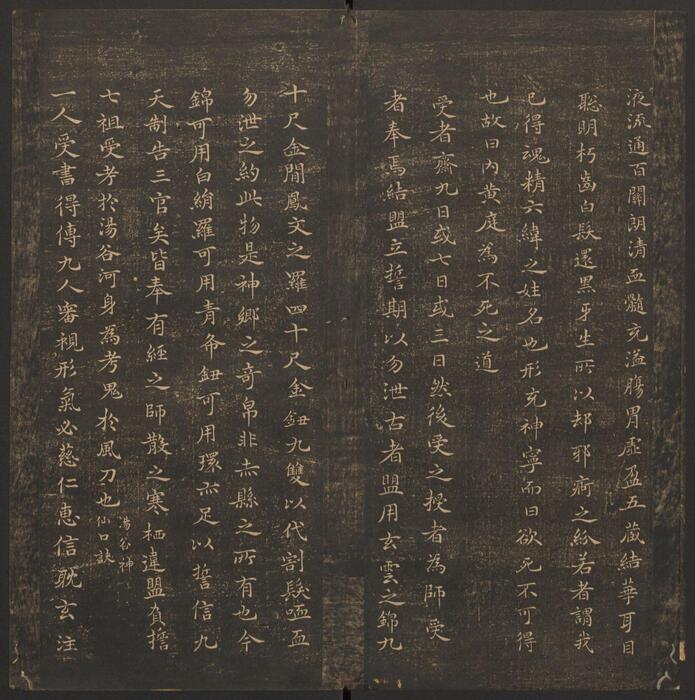 液流通百關朗清血髓充溢腸胃虛盈五藏結華耳目
聡明朽齒白髮還黑牙生所以却邪痾之紛若者謂我
已得魂精六緯之姓名也形充神寧而曰欲死不可得
也故曰内黄庭為不死之道
受者齋九日或七日或三日然後受之授者為師受
者奉焉結盟立誓期以勿泄古者盟用玄雲之錦九
十尺金簡鳳文之羅四十尺金鈕九雙以代割髮歃血
勿泄之約此物是神鄉之奇帛非赤縣之所有也今
錦可用白絹羅可用青布鈕可用環亦足以誓信九
天制告三官矣皆奉有經之師散之寒栖違盟負擔
七祖受考於湯谷河身為考鬼於風刀也湯谷神仙口訣
一人受書得傳九人審視形氣必慈仁恵信耽玄注